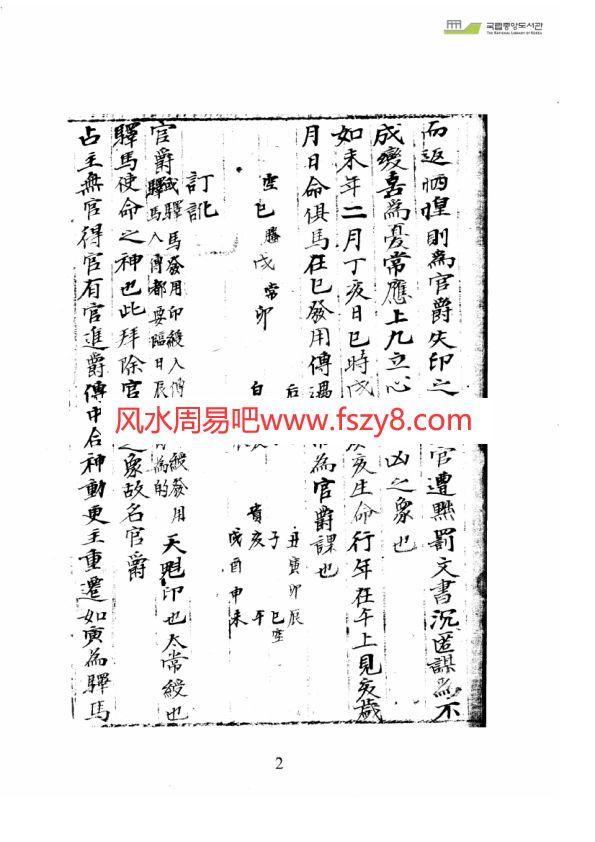 국립중앙도서관
THE NATIONAL LIBRARY OF KOREA
而返恓惶則為官爵失印之
官遭黜罰文書沉匿謀為不
成變喜為憂常應上九立心
凶之象也
如未年二月丁亥日巳時戌
亥生命行年在午上見亥歲
月日命俱馬在巳發用傳
為官爵課也
空巳 螣 戌 常 卯
后
白
丑寅卯辰
子 巳空
貴亥 午
戌酉申未
訂訛
官爵
或驛馬發用印綬入傳
綬發用
驛馬入傳都要臨日辰
為的
天魁印也太常綬也
驛馬使命之神也此拜除官
之象故名官爵
占主無官得官有官進爵傳中合神動更主重遷如寅為驛馬
风水周易吧www.fszy8.com
2